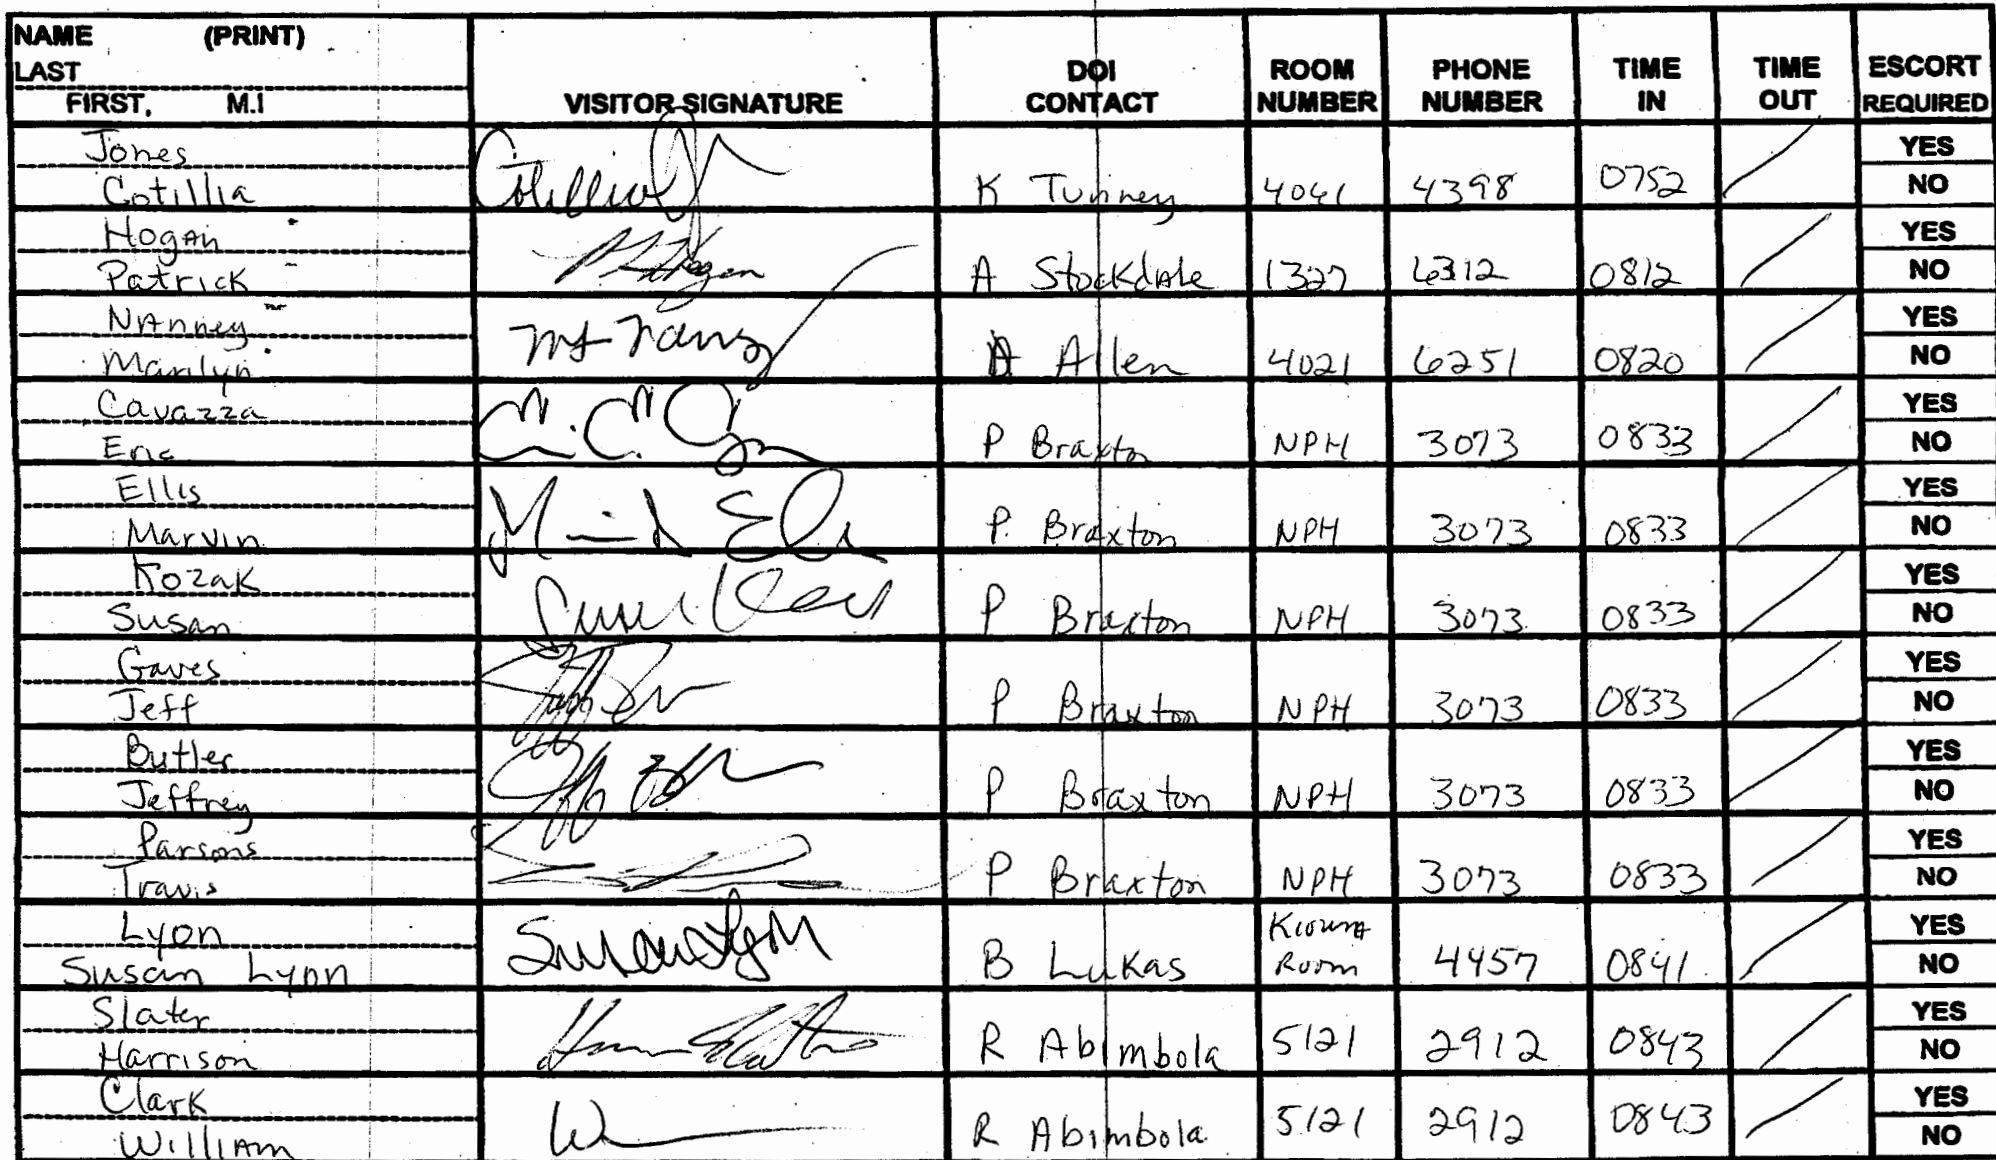 NAME (PRINT)
LAST
FIRST, M.I
VISITOR SIGNATURE
DOI CONTACT
ROOM NUMBER
PHONE NUMBER
TIME IN
TIME OUT
ESCORT REQUIRED
Jones YES
Cotillia K Tunney 4041 4398 0752 NO
Hogan YES
Patrick A Stockdale 1327 6312 0812 NO
Nanney YES
Marilyn A Allen 4021 6251 0820 NO
Cavazza YES
Eric P Braxton NPH 3073 0833 NO
Ellis YES
Marvin P. Braxton NPH 3073 0833 NO
Kozak YES
Susan P Braxton NPH 3073 0833 NO
Gaves YES
Jeff P Braxton NPH 3073 0833 NO
Butler YES
Jeffrey P Braxton NPH 3073 0833 NO
Parsons YES
Travis P Braxton NPH 3073 0833 NO
Lyon Susan Lyon YES
Susan Lyon B Lukas Room 4457 0841 NO
Slater YES
Harrison R Abimbola 5121 2912 0843 NO
Clark YES
William R Abimbola 5121 2912 0843 NO